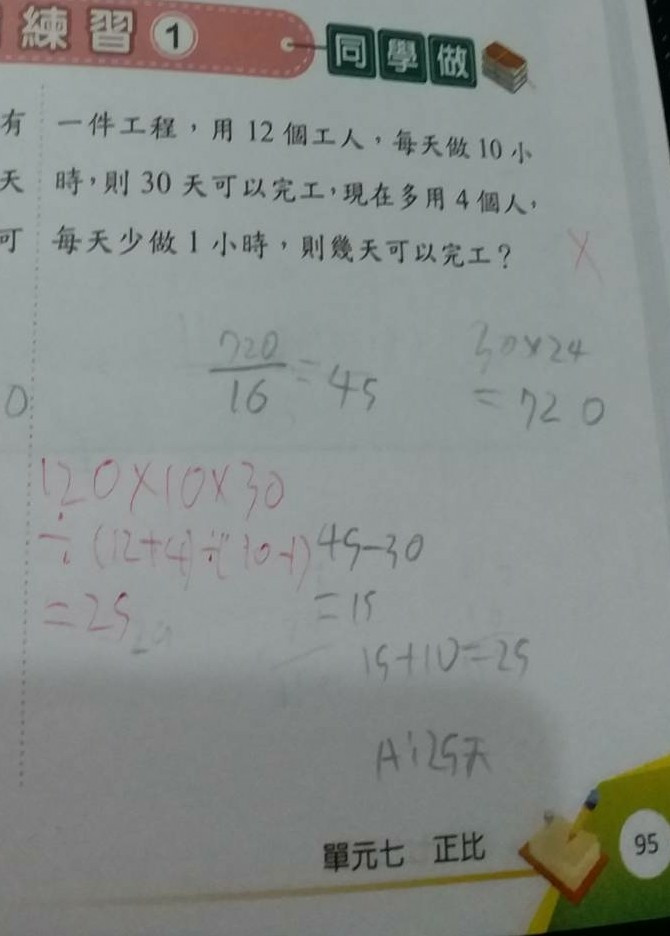 練習 1
同學做
有
天
可
一件工程，用 12 個工人，每天做 10 小
時，則 30 天可以完工，現在多用 4 個人，
每天少做 1 小時，則幾天可以完工？
X
720/16 = 45
30×24
= 720
0
120×10×30
÷(12+4)÷(10-1)
=25
45-30
=15
15+10=25
A:25天
單元七 正比
95